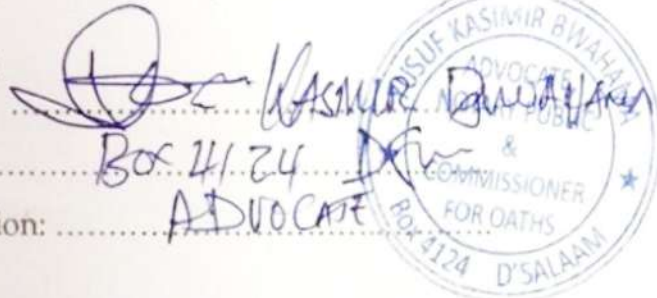 KASMIR BWAHAMA
Box 4124 DSM
ion: ADVOCATE
YUSUF KASIMIR BWAHAMA
ADVOCATE
NOTARY PUBLIC
&
COMMISSIONER
FOR OATHS
BOX 4124 D'SALAAM